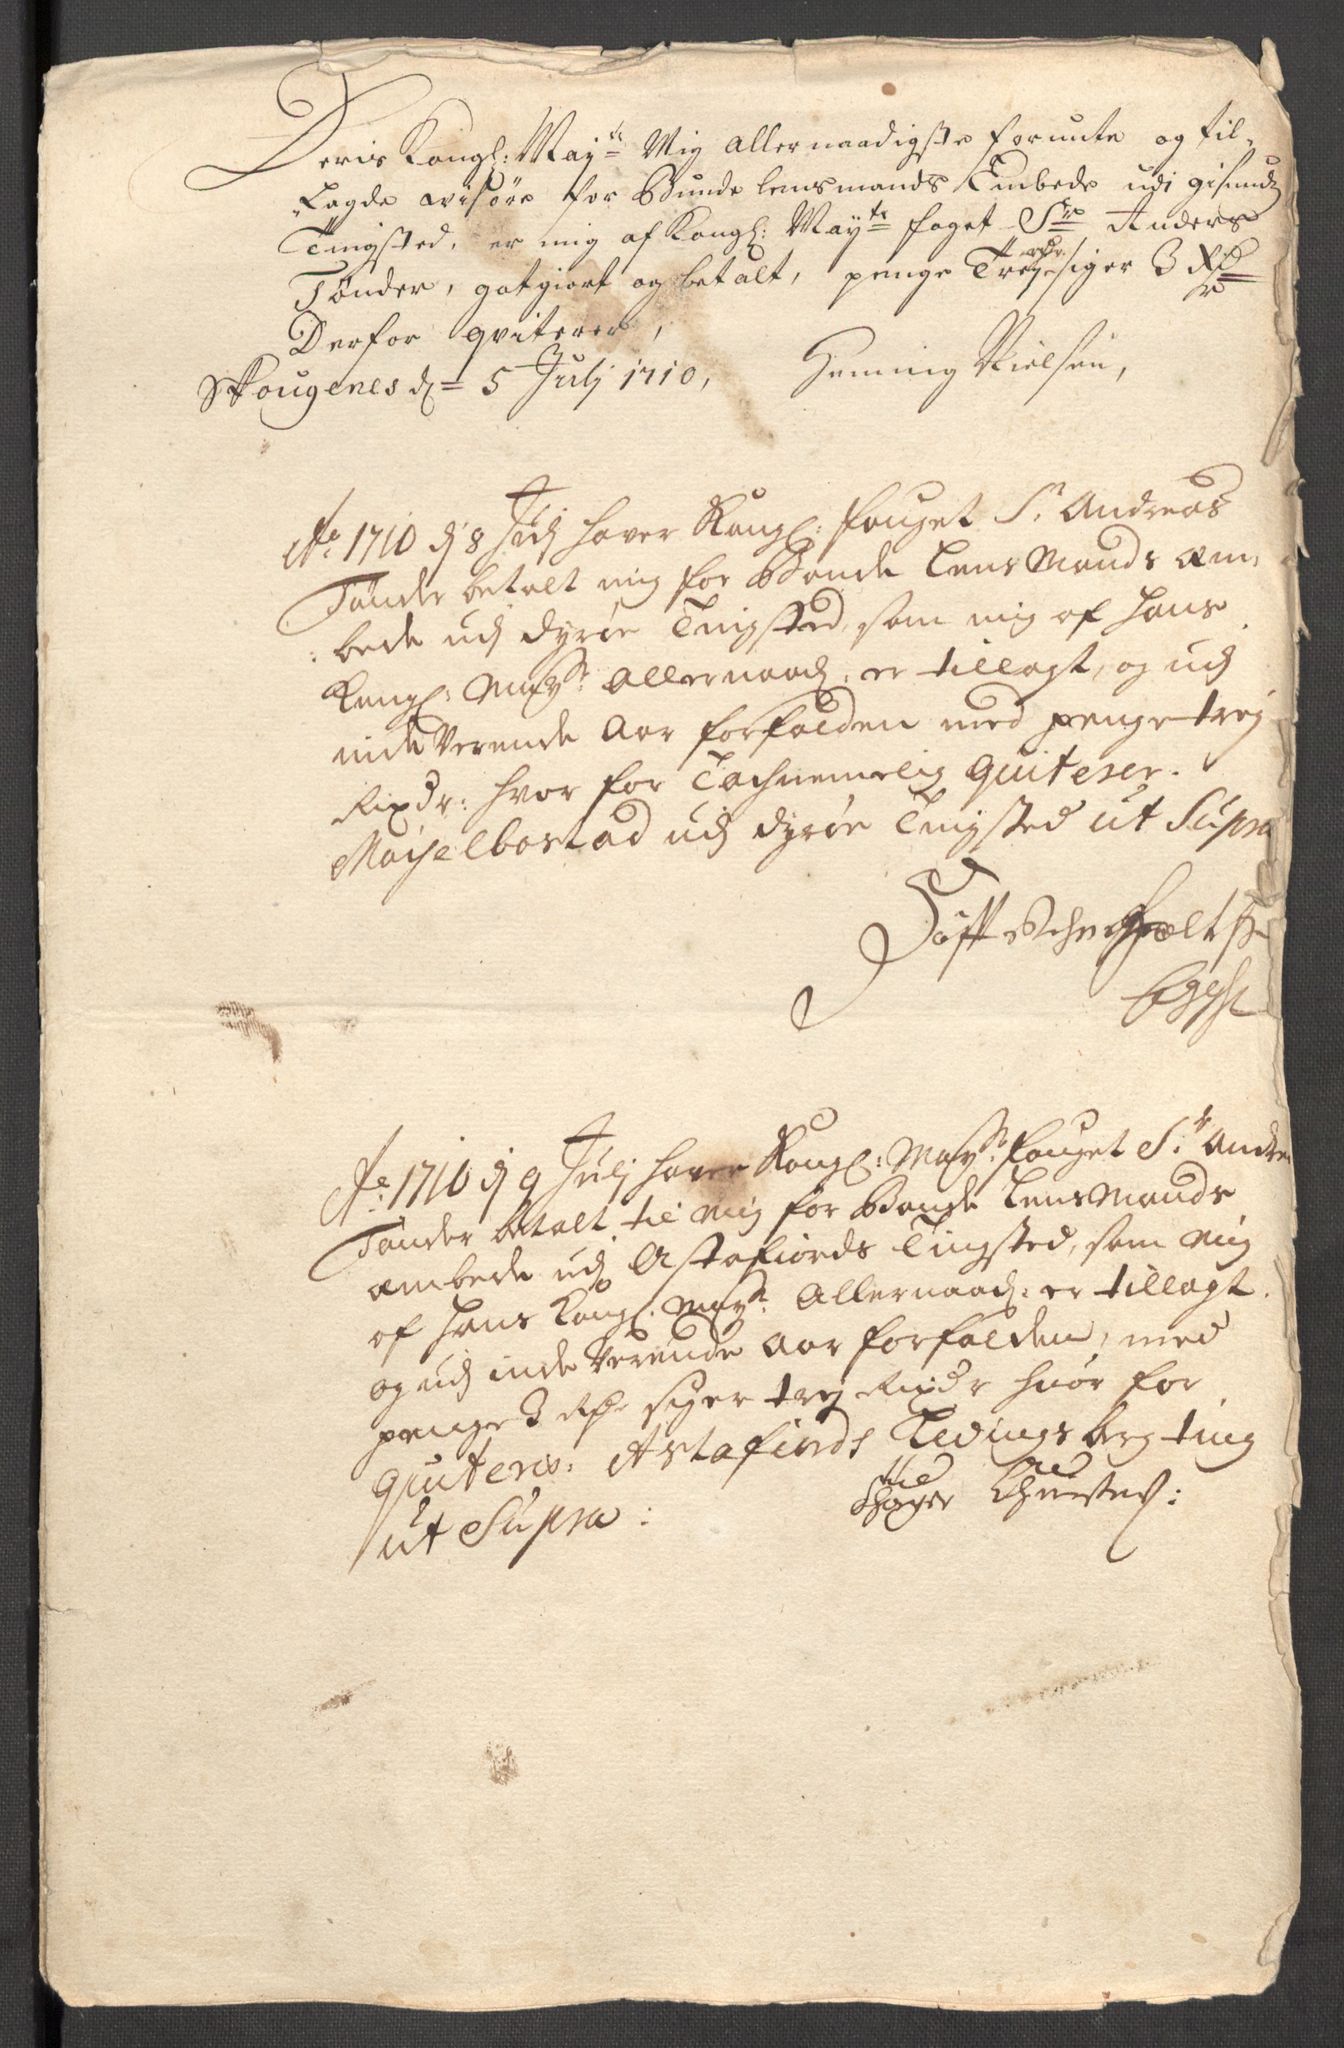 Deris Kongl: May:te Mig Allernaadigste forunte og til-
lagde avisøre for Bunde lensmands Embede udi gisund
Tingsted, er mig af Kongl: May:te foget Sr Anders
Tønder, gotgiort og betalt, penge Trej rdr siger 3 Rdr
Derfor qviterer,
Skougenes d = 5 Julj 1710, Heming Nielsen,
Ao 1710 dj 8 Julj haver Kongl: fouget Sr. Andreas
Tønder betalt mig for Bonde Lens Mands æm-
bede udj dyrøe Tingsted, som mig af Hans
Kongl: Mays: Allernaad: er tillagt, og udj
inde Verende Aar forfalden med penge trej
Rixdr: hvor for Tachnemelig quiterer.
udj dyrøe Tingsted ut Supra
Toft
Ao 1710 dj 9 Julj haver Kongl: Mays: fouget Sr. Andrea
Tønder betalt til Mig for Bonde Lens Mands
æmbede udj Astafiords Tingsted, som Mig
af Hans Kongl. Mays: Allernaad: er tillagt.
og udj inde Verende Aar forfalden, med
penge 3 Rdr siger trej Rixdr huor for
quiteris: Astafiords ting
ut Supra: